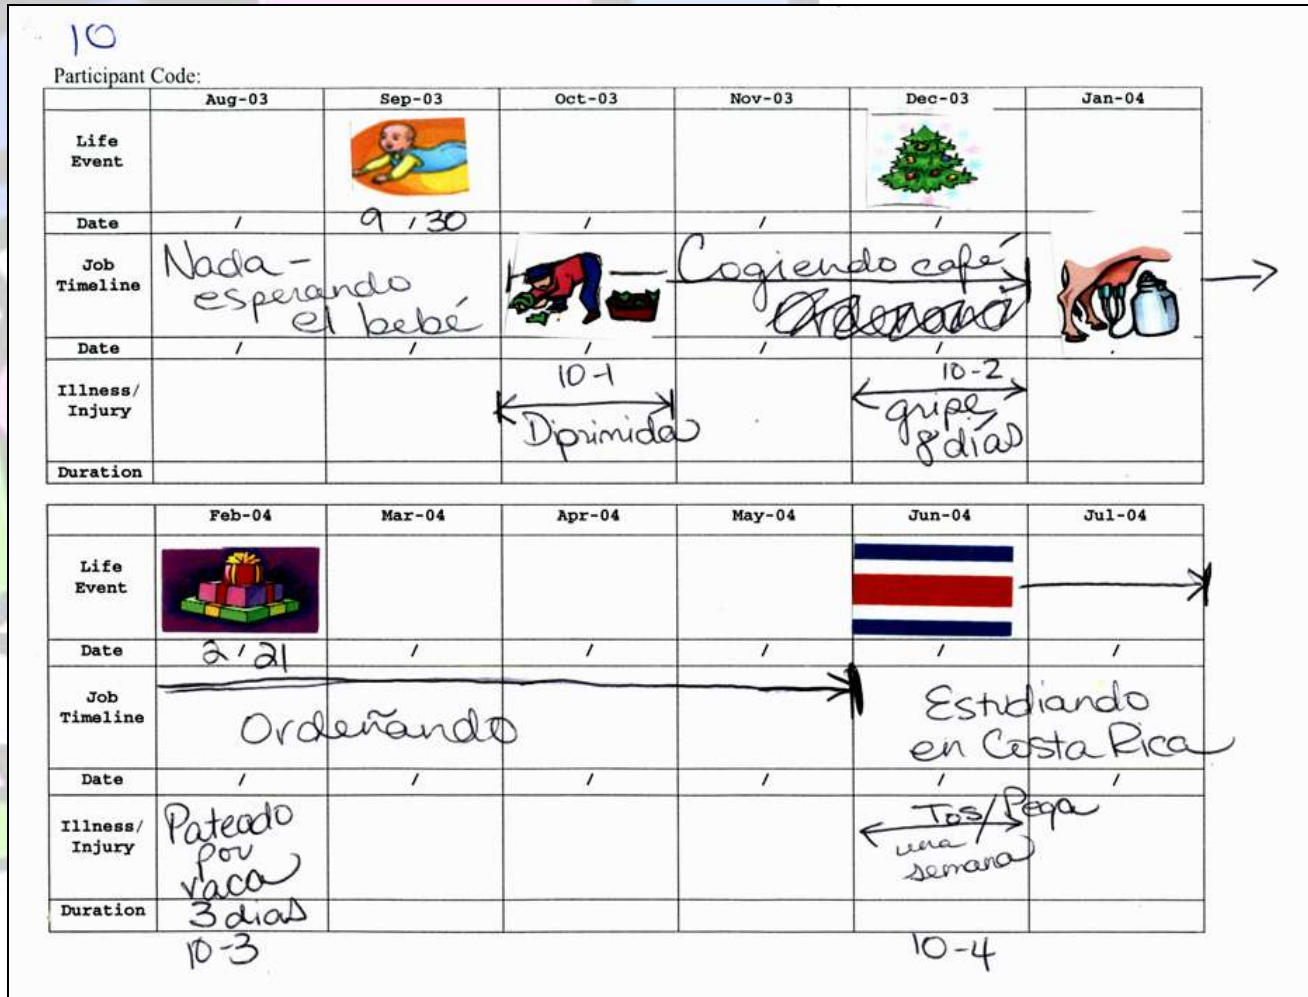 10
Participant Code:
Aug-03 Sep-03 Oct-03 Nov-03 Dec-03 Jan-04
Life Event
Date / 9 / 30 / / / /
Job Timeline
Nada -
esperando
el bebé
Cogiendo café
Date / / / / / .
Illness/ Injury
10-1
Diprimida
10-2
gripe
8 días
Duration
Feb-04 Mar-04 Apr-04 May-04 Jun-04 Jul-04
Life Event
Date 2 / 21 / / / / /
Job Timeline
Ordeñando
Estudiando
en Costa Rica
Date / / / / / /
Illness/ Injury
Pateado
por
vaca
Tos/Pega
una
semana
Duration 3 dias
10-3 10-4